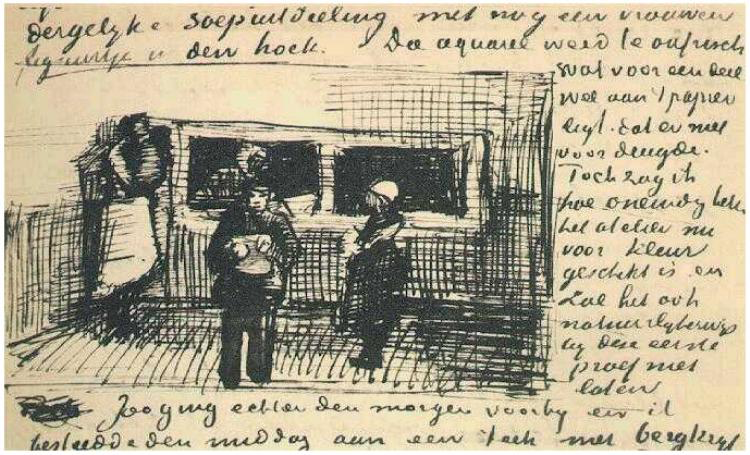 dergelyke soepuitdeeling met nog een vrouwen
figuurtje in den hoek. De aquarel werd te onfrisch
wat voor een deel
wel aan 't papier
ligt. dat er niet
voor deugde.
Toch zag ik
hoe oneindig beter
het atelier nu
voor kleur
geschikt is en
zal het ook
natuurlykerwijs
by deze eerste
proef niet
laten
Zoo ging echter den morgen voorby en ik
besteedde den middag aan een teek met bergkryt